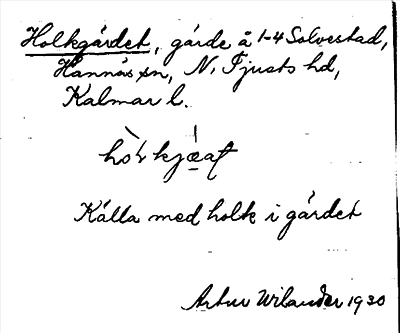 Holkgärdet, gärde å 1-4 Solvestad,
Hannäs sn, N. Tjusts hd,
Kalmar l.
Källa med holk i gärdet
Artur Wilander 1930